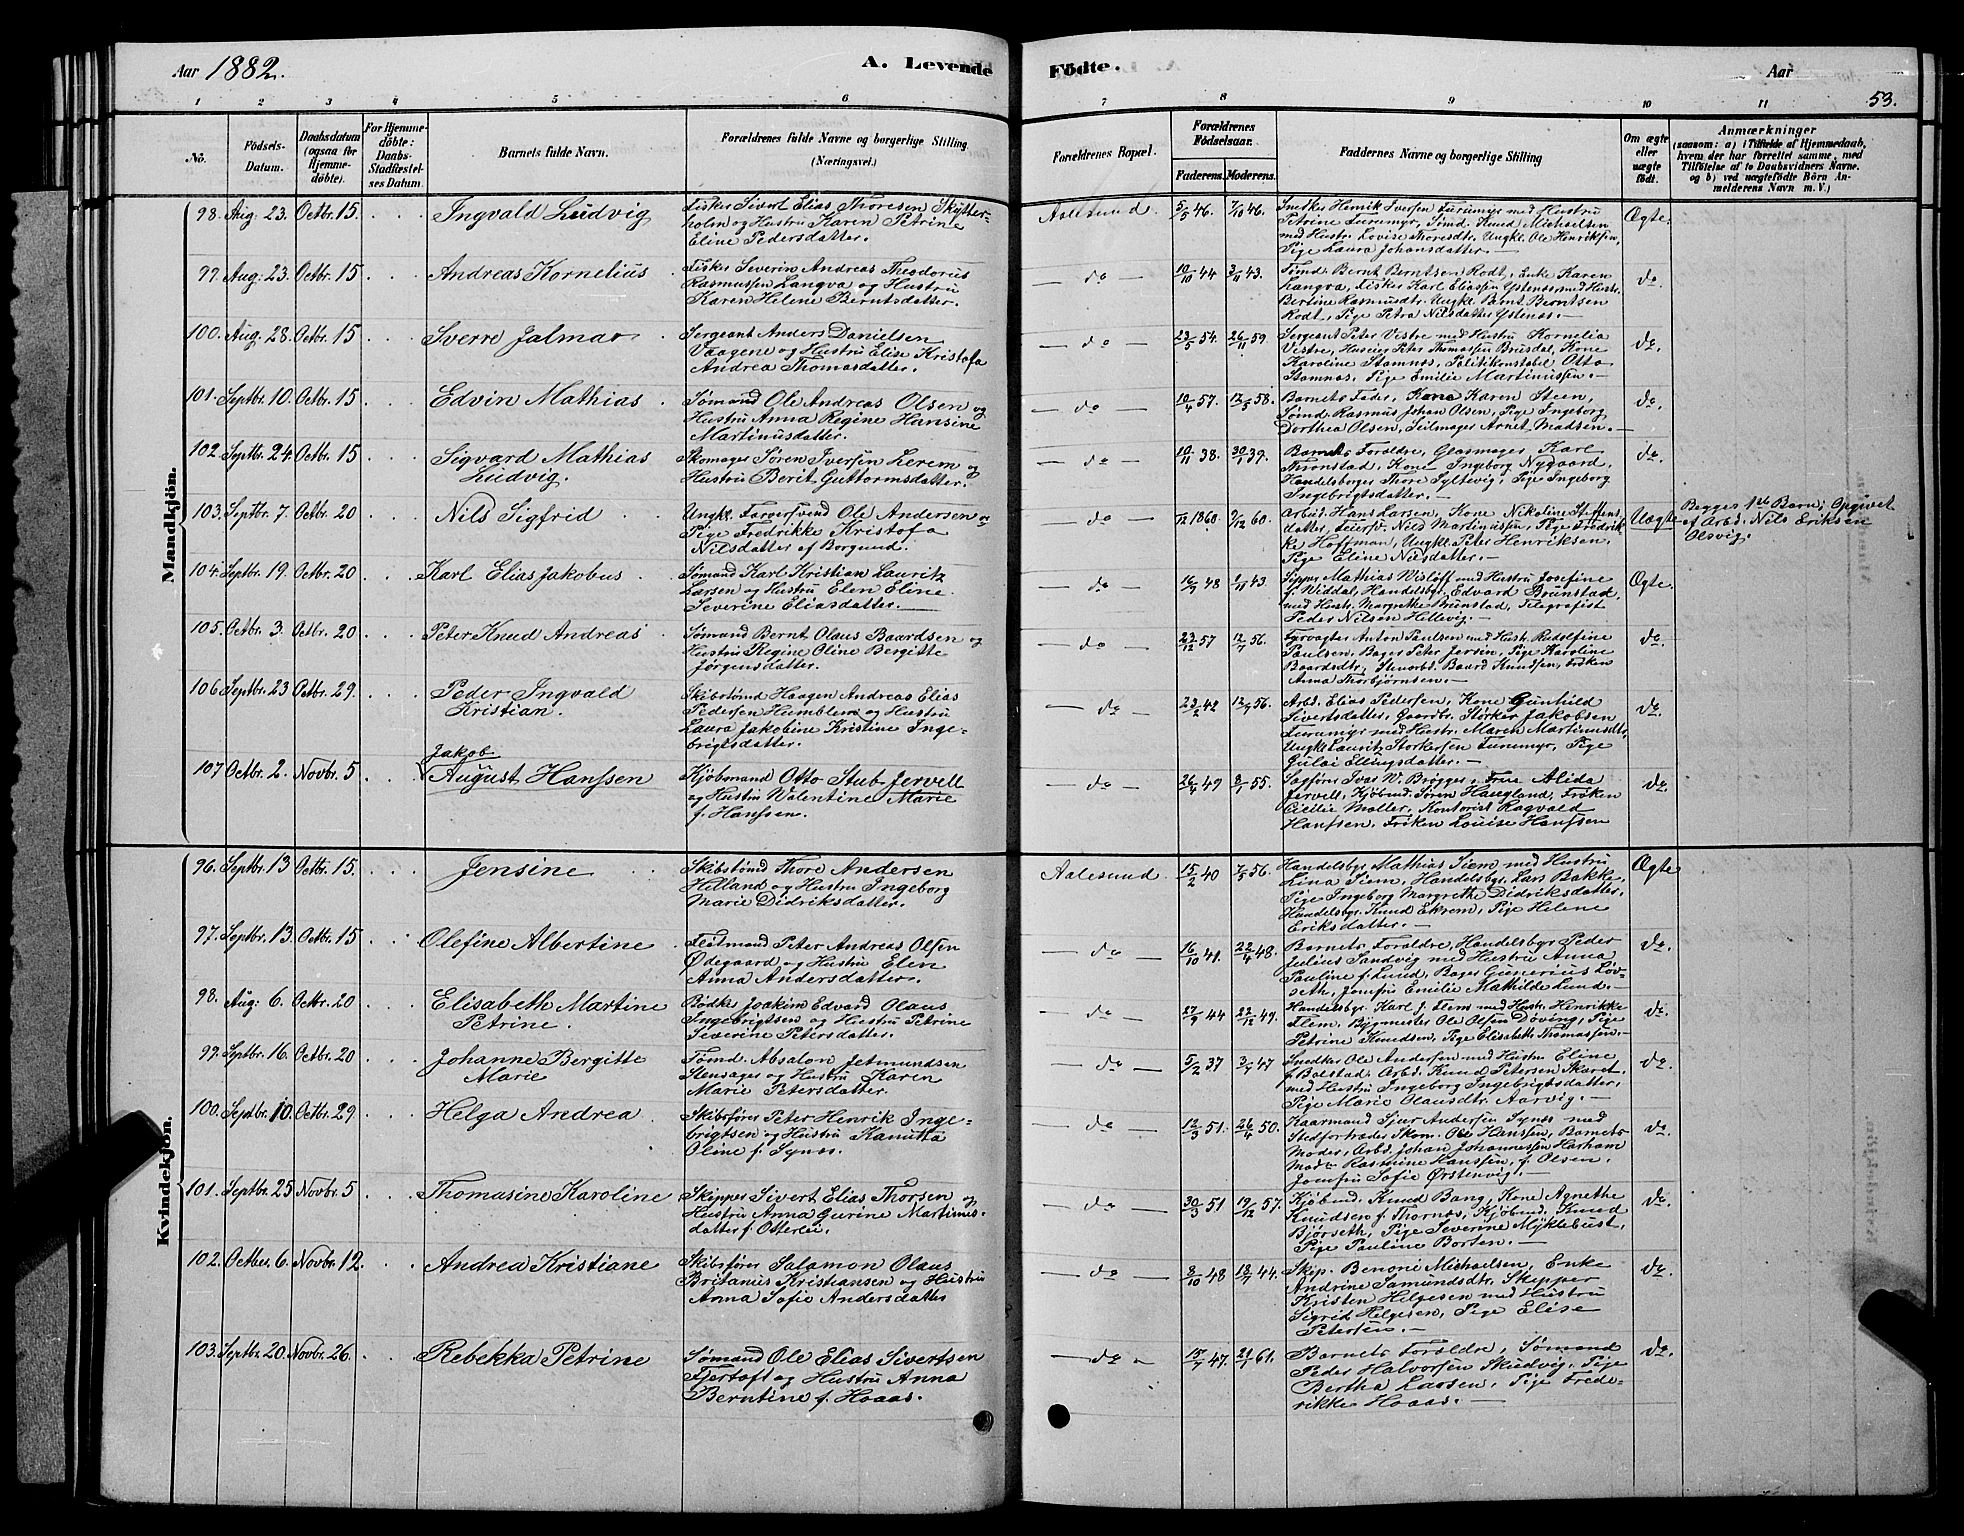 Aar 1882.
A. Levende Födte.
Aar
53.
1 2 3 4 5 6 7 8 9 10 11
No.
Födsels-Datum.
Daabsdatum (ogsaa for Hjemme-döbte).
For Hjemme-döbte: Daabs-Stadfæstel-ses Datum.
Barnets fulde Navn.
Forældrenes fulde Navne og borgerlige Stilling (Næringsvei.)
Forældrenes Bopæl.
Forældrenes Födselsaar.
Faderens. Moderens.
Faddernes Navne og borgerlige Stilling
Om ægte eller uægte födt.
Anmærkninger
(saasom: a) i Tilfælde af Hjemmedaab, hvem der har forrettet samme, med Tilföielse af to Daabsvidners Navne. og b) ved uægtefödte Börn An-melderens Navn m. V.)
Mandkjön.
98. Aug: 23. Octbr. 15. Ingvald Ludvig
Fisker Sivert Elias Thoresen Skytter-
holm og Hustru Karen Petrine
Eline Pedersdatter.
Aalesund. 5/5 46. 7/10 46.
Snedker Henrik Iversen Furumyr med Hustru
Petrine Furumyr, Sømd. Knud Michaelsen
med Hustru Lovise Thoresdtr. Ungkl. Ole Henriksen,
Pige Laura Johansdatter.
Ægte.
99. Aug: 23. Octbr. 15 Andreas Kornelius
Fisker Severin Andreas Theodorus
Rasmussen Langva og Hustru
Karen Helene Berntsdatter.
do 10/10 44 3/11 43.
Tømd. Bernt Berntsen Rodt, Enke Karen
Langva, Fisker Karl Eliassen Ystenes med Hustr.
Bertine Rasmusdtr. Ungkl. Bernt Berntsen
Rodt, Pige Petra Nilsdatter Ystenes.
do.
100. Aug: 28. Octbr. 15 Sverre Jalmar
Sergeant Anders Danielsen
Vaagene og Hustru Elise Kristofa
Andrea Thomasdatter.
do 23/5 54. 26/11 59
Sergeant Peter Vestre med Hustru Kornelia
Vestre, Huseier Peter Thomassen Brusdal, Kone
Karoline Stamnes, Politikonstabel Otto
Stamnes, Pige Emilie Martinussen.
do.
101. Septbr. 10. Octbr. 15 Edvin Mathias
Sømand Ole Andreas Olsen og
Hustru Anna Regine Hansine
Martinusdatter.
do 10/4 57. 12/5 58.
Barnets Fader, Kone Karen Steen,
Sømd. Rasmus Johan Olsen, Pige Ingeborg
Dorthea Olsen, Seilmager Arnet Madsen.
do.
102. Septbr. 24. Octbr. 15 Sigvard Mathias
Ludvig.
Skomager Søren Iversen Lerem og
Hustru Berit Guttormsdatter.
do 10/11 38. 30/1 39.
Barnets Foreldre, Glasmager Karl
Thronstad, Kone Ingeborg Nygaard,
Handelsborger Thore Syltevig, Pige Ingeborg
Ingebrigtsdatter.
do.
103. Septbr. 7. Octbr. 20 Nils Sigfrid
Ungkl. Farversvend Ole Andersen og
Pige Fredrikke Kristofa
Nilsdatter af Borgund.
do /12 1860. 7/12 60.
Arbeid. Hans Larsen, Kone Nikoline Steffens-
datter, Nils Martinussen, Pige Fredrik-
ke Hoffman, Ungkl. Peter Henriksen,
Pige Eline Nilsdatter.
Uægte
Begges 1ste Barn; Opgivet
af Arbd. Nils Eriksen
Olsvig.
104. Septbr. 19. Octbr. 20 Karl Elias Jakobus
Sømand Karl Kristian Lauritz
Larsen og Hustru Elen Eline
Severine Eliasdatter.
do 16/9 48 1/11 43.
Skipper Mathias Wisløff med Hustru Josefine
f. Widdal, Handelsbgr. Edvard Brunstad,
med Hustr. Margrethe Brunstad, Telegrafist
Peder Nilsen Hellevig.
Ægte.
105. Octbr. 3. Octbr. 20 Peter Knud Andreas
Sømand Bernt Olaus Baardsen og
Hustru Regine Oline Bergitte
Jørgensdatter.
do 23/12 57 12/7 56.
Fyrvogter Anton Paulsen med Hustr. Rudolfine
Paulsen, Bager Peter Jersin, Pige Karoline
Baardsdtr., Stenarbd. Baard Knudsen, Frøken
Anna Thorbjørnsen.
do
106 Septbr. 23 Octbr. 29. Peder Ingvald
Kristian.
Skibstømd Haagen Andreas Elias
Pedersen Humblem og Hustru
Laura Jakobine Kristine Inge-
brigtsdatter.
do 23/2 42 12/9 56.
Arbd. Elias Pedersen, Kone Gunhild
Sivertsdatter, Gaardbr. Størker Jakobsen
Furumyr med Hustr. Maren Martinusdtr.
Ungkl. Lauritz Størkersen Furumyr, Pige
Gulai Ellingsdatter.
do.
107 Octbr. 2. Novbr. 5 Jakob
August Hanssen
Kjøbmand Otto Stub Jervell
og Hustru Valentine Marie
f. Hanssen.
do 26/4 49 8/1 55.
Sagfører Ivar W. Brøgger, Frue Alida
Jervell, Kjøbmd. Søren Haugland, Frøken
Cecilie Møller, Kontorist Ragvald
Hanssen, Frøken Louise Hanssen
do.
Kvindekjön.
96. Septbr. 13 Octbr. 15. Jensine
Skibstømd Thore Andersen
Helland og Hustru Ingeborg
Marie Didriksdatter.
Aalesund. 15/2 40 7/5 56.
Handelsbgr. Mathias Siem med Hustru
Lina Siem, Handelsbgr. Lars Bakke,
Pige Ingeborg Margrethe Didriksdatter,
Handelsbgr. Knud Eksem, Pige Helene
Eriksdatter.
Ægte
97. Septbr. 13. Octbr. 15 Olefine Albertine
Feitmand Peter Andreas Olsen
Ødegaard og Hustru Elen
Anna Andersdatter.
do 16/10 41. 22/4 48.
Barnets Foreldre, Handelsbgr Peder
Julius Sandvig med Hustru Anna
Pauline f. Lund, Bager Gunerius Løv-
seth, Jomfru Emilie Mathilde Lund.
do.
98. Aug: 6. Octbr. 20 Elisabeth Martine
Petrine.
Bødker Joakim Edvard Olaus
Ingebrigtsen og Hustru Petrine
Severine Petersdatter.
do 27/9 44 22/12 49.
Handelsbgr. Karl J. Flem med Hustr. Henrikke
Flem, Bygmester Ole Olsen Døving, Pige
Petrine Knudsen, Pige Elisabeth Thomassen.
do.
99. Septbr. 16. Octbr. 20 Johanne Bergitte
Marie
Tømd. Absalon Jetmundsen
Stensager og Hustru Karen
Marie Petersdatter.
do 5/2 37 3/9 47
Snedker Ole Andersen med Hustru Eline
f. Bolstad, Arbd. Knud Petersen Skaret
med Hustru Ingeborg Ingebrigtsdatter,
Pige Marie Olausdtr. Aarvig.
do.
100. Septbr. 10. Octbr. 29 Helga Andrea
Skibsfører Peter Henrik Inge-
brigtsen og Hustru Kanutta
Oline f. Synes.
do 12/3 51. 26/4 50.
Kaarmand Sjur Andersen Synes med
Stedfortræder Skom. Ole Hanssen, Barnets
Moder, Arbd. Johan Johannessen Harham
Mode Rasmine Hanssen, f. Olsen,
Jomfru Sofie Ørstenvig.
do.
101. Septbr. 25 Novbr. 5 Thomasine Karoline
Skipper Sivert Elias Thorsen og
Hustru Anna Gurine Martinus-
datter f. Otterlei.
do 30/3 51 19/12 57.
Kjøbmd. Knud Bang, Kone Agnethe
Knudsen f. Thornes, Kjøbmd. Knud
Bjørseth, Pige Severine Myklebust,
Pige Pauline Borsen.
do.
102. Octber 6. Novbr. 12. Andrea Kristiane
Skibsfører Salamon Olaus
Britanus Kristiansen og Hustru
Anna Sofie Andersdatter
do 8/10 48 18/7 44.
Skip. Benoni Michaelsen, Enke
Andrine Samundsdtr. Skepper
Kristen Helgesen med Hustru
Sigrid Helgesen, Pige Elise
Petersen.
do.
103. Septbr. 20. Novbr. 26. Rebekka Petrine
Sømand Ole Elias Sivertsen
Fjertoft og Hustru Anna
Berntine f. Hoaas.
do 17/7 47. 21/1 61.
Barnets Foreldre, Sømand
Peder Halvorsen Skudvig, Pige
Bertha Larsen, Pige Frede-
rikke Hoaas.
do.